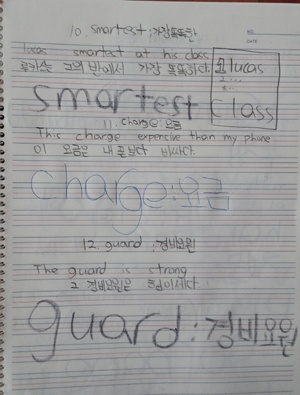 NO.
DATE
10. smartest : 가장 똑똑한
lucas smartest at his class
루카스는 그의 반에서 가장 똑똑하다.
lucas
1...
2...
smartest class
11. charge : 요금
This charge expensive than my phone
이 요금은 내 폰보다 비싸다.
charge : 요금
12. guard : 경비요원
The guard is strong
그 경비요원은 힘이세다.
guard : 경비요원